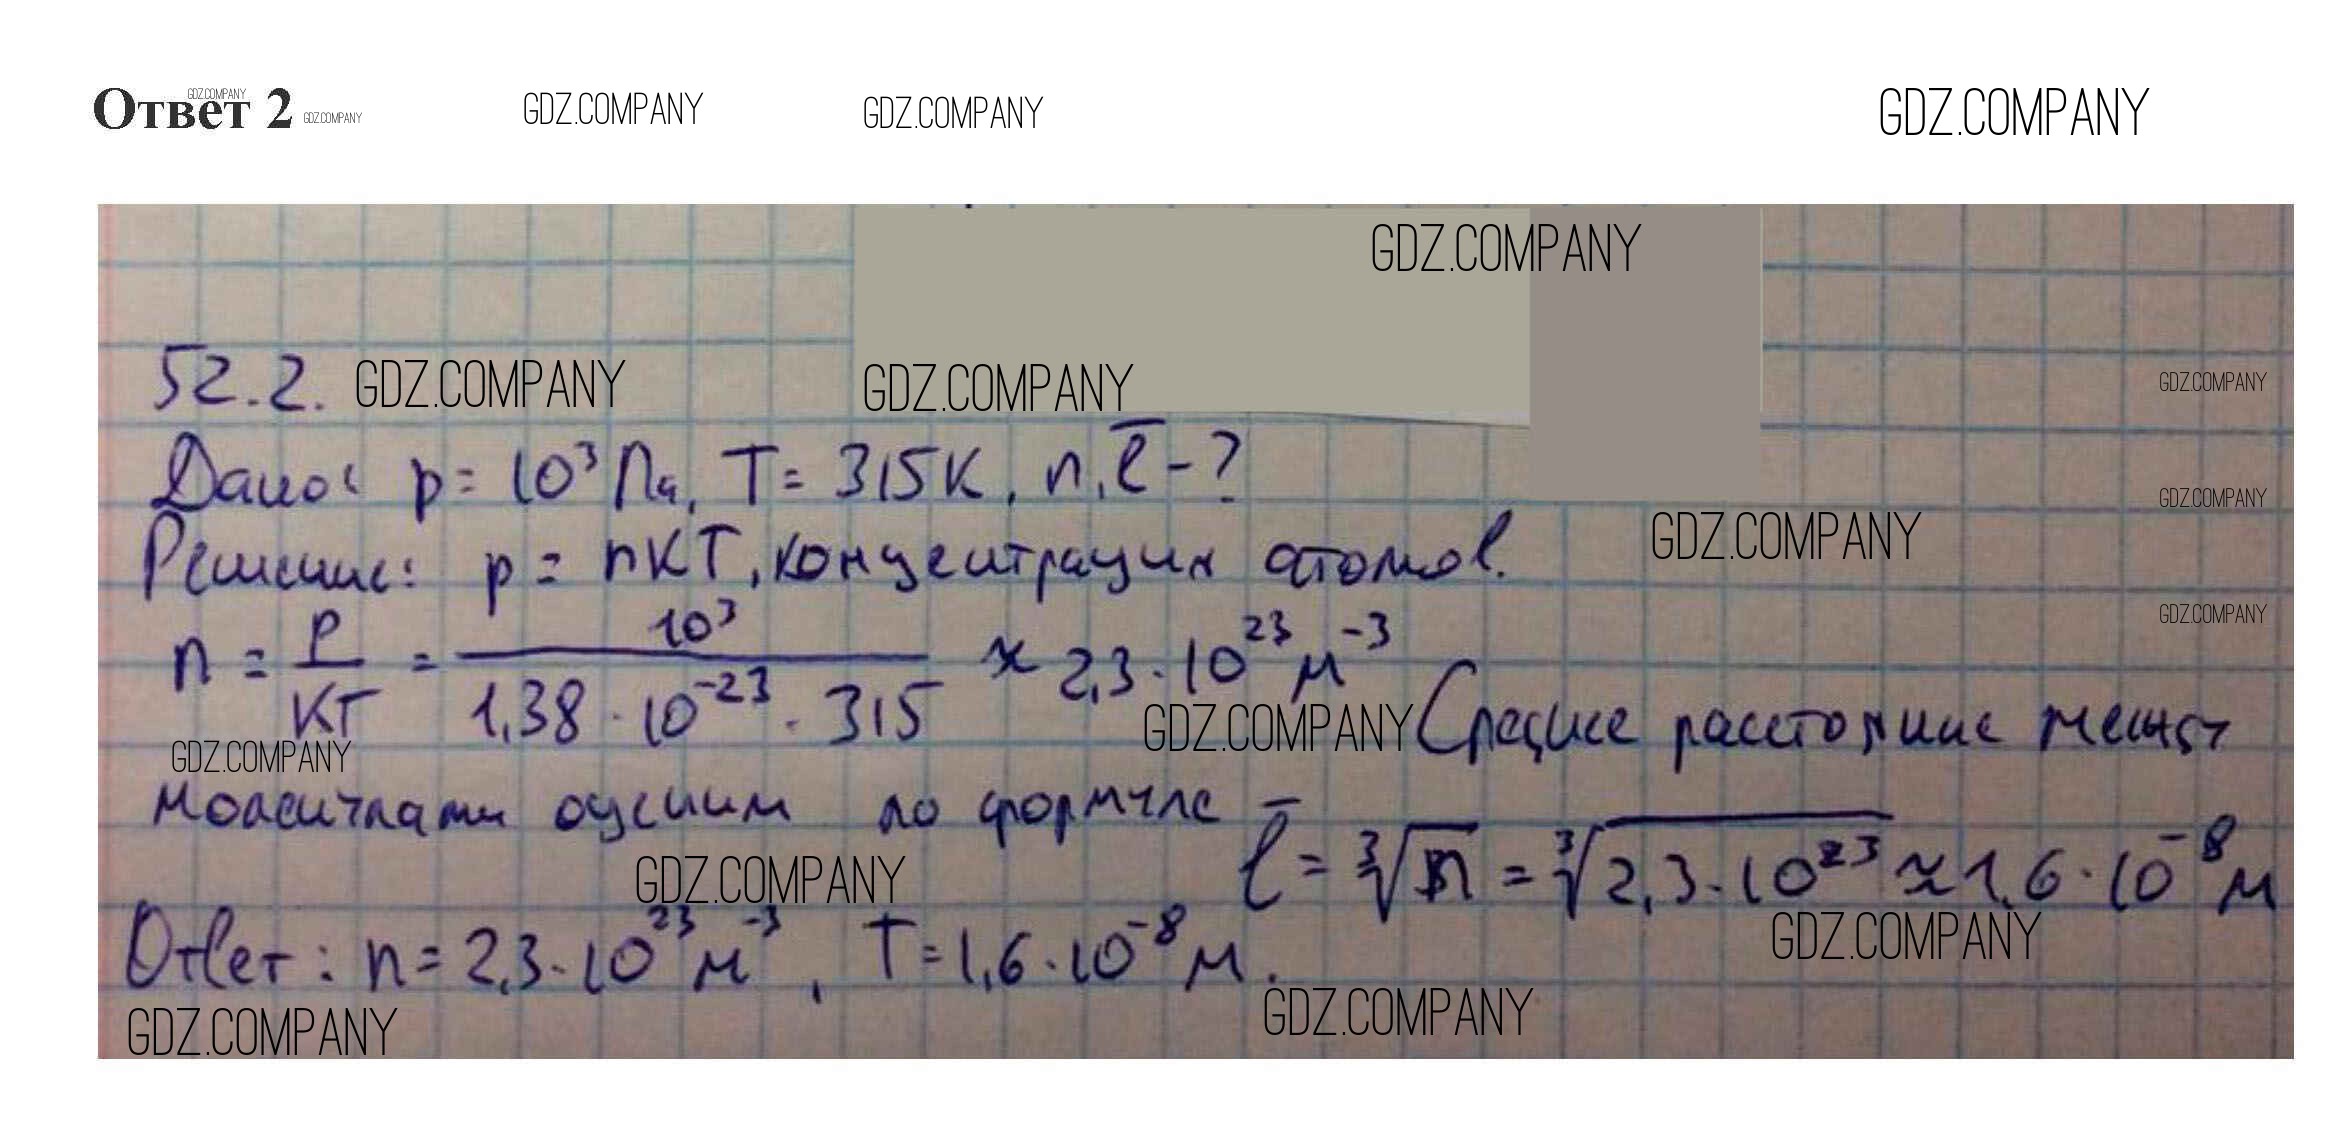 Ответ 2
GDZ.COMPANY
GDZ.COMPANY
GDZ.COMPANY
GDZ.COMPANY
GDZ.COMPANY
GDZ.COMPANY
52.2.
GDZ.COMPANY
GDZ.COMPANY
GDZ.COMPANY
Дано: p = 10³ Па, T = 315 К, n, l̄ - ?
GDZ.COMPANY
Решение: p = nKT, концентрация атомов.
GDZ.COMPANY
GDZ.COMPANY
n = P/KT = 10³/1,38 · 10⁻²³ · 315 ≈ 2,3 · 10²³ м⁻³ Среднее расстояние между
GDZ.COMPANY
GDZ.COMPANY
молекулами оценим по формуле l̄ = ³√n = ³√2,3 · 10²³ ≈ 1,6 · 10⁻⁸ м
GDZ.COMPANY
GDZ.COMPANY
Ответ: n = 2,3 · 10²³ м⁻³, T = 1,6 · 10⁻⁸ м.
GDZ.COMPANY
GDZ.COMPANY